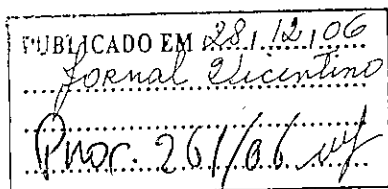 PUBLICADO EM 28/12/06
Jornal Vicentino
Proc. 261/06